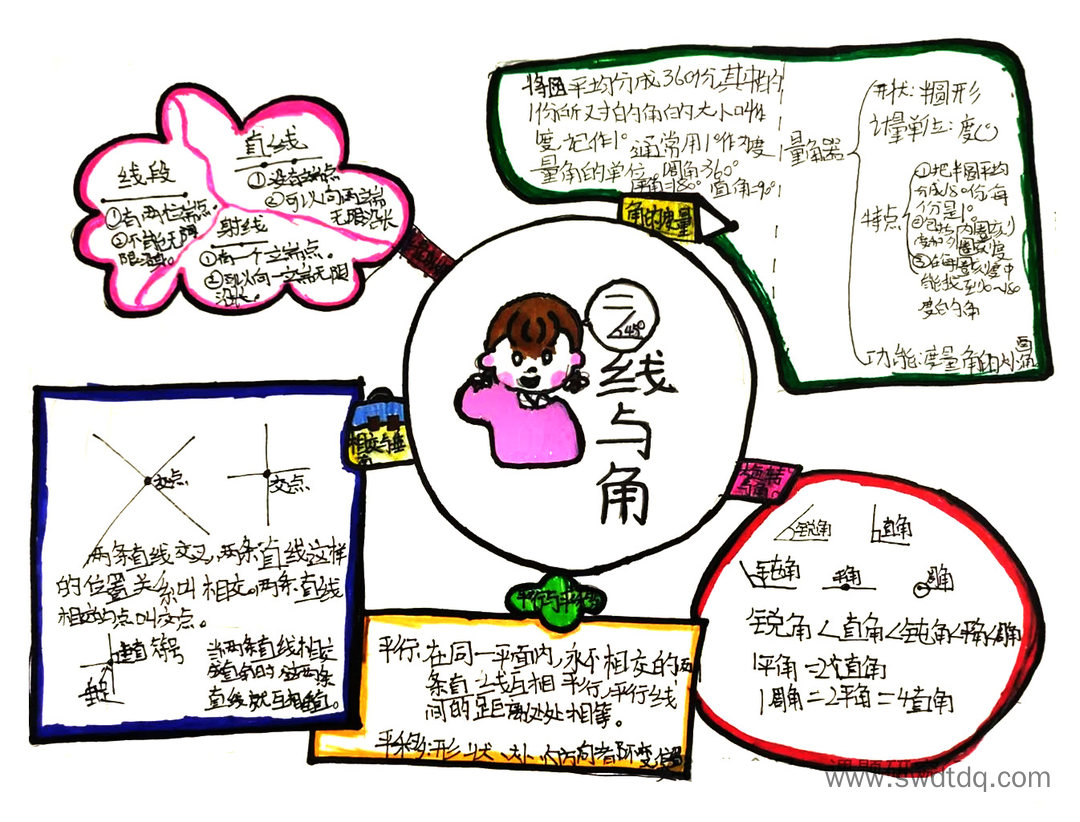 二
45°
线与角
直线
①没有端点
②可以向两端
无限延长
线段
①有两个端点。
②不能无限
限延长。
射线
①有一个端点。
②可以向一端无限
延长。
角的度量
将圆平均分成360份,其中的
1份所对的角的大小叫做
1度,记作1°。通常用1°作为度
量角的单位。周角=360°
平角=180° 直角=90°
量角器
形状:半圆形
计量单位:度
特点
①把半圆平均
分成180份,每
份是1°。
②包括内圈刻
度和外圈刻度
③在每圈刻度中
能找到0~180
度的角
功能:度量角的大小
画角
相交与垂
直
交点
交点
两条直线交叉,两条直线这样
的位置关系叫相交。两条直线
相交的点叫交点。
垂直符号
垂足
当两条直线相交
成直角时,这两条
直线就互相垂直。
平行与平移
平行:在同一平面内,永不相交的两
条直线互相平行,平行线
间的距离处处相等。
平移:形状、大小、方向都不变
位置
旋转
与角。
锐角
直角
钝角
平角
周角
锐角<直角<钝角<平角<周角
1平角=2个直角
1周角=2平角=4直角
www.swdtdq.com